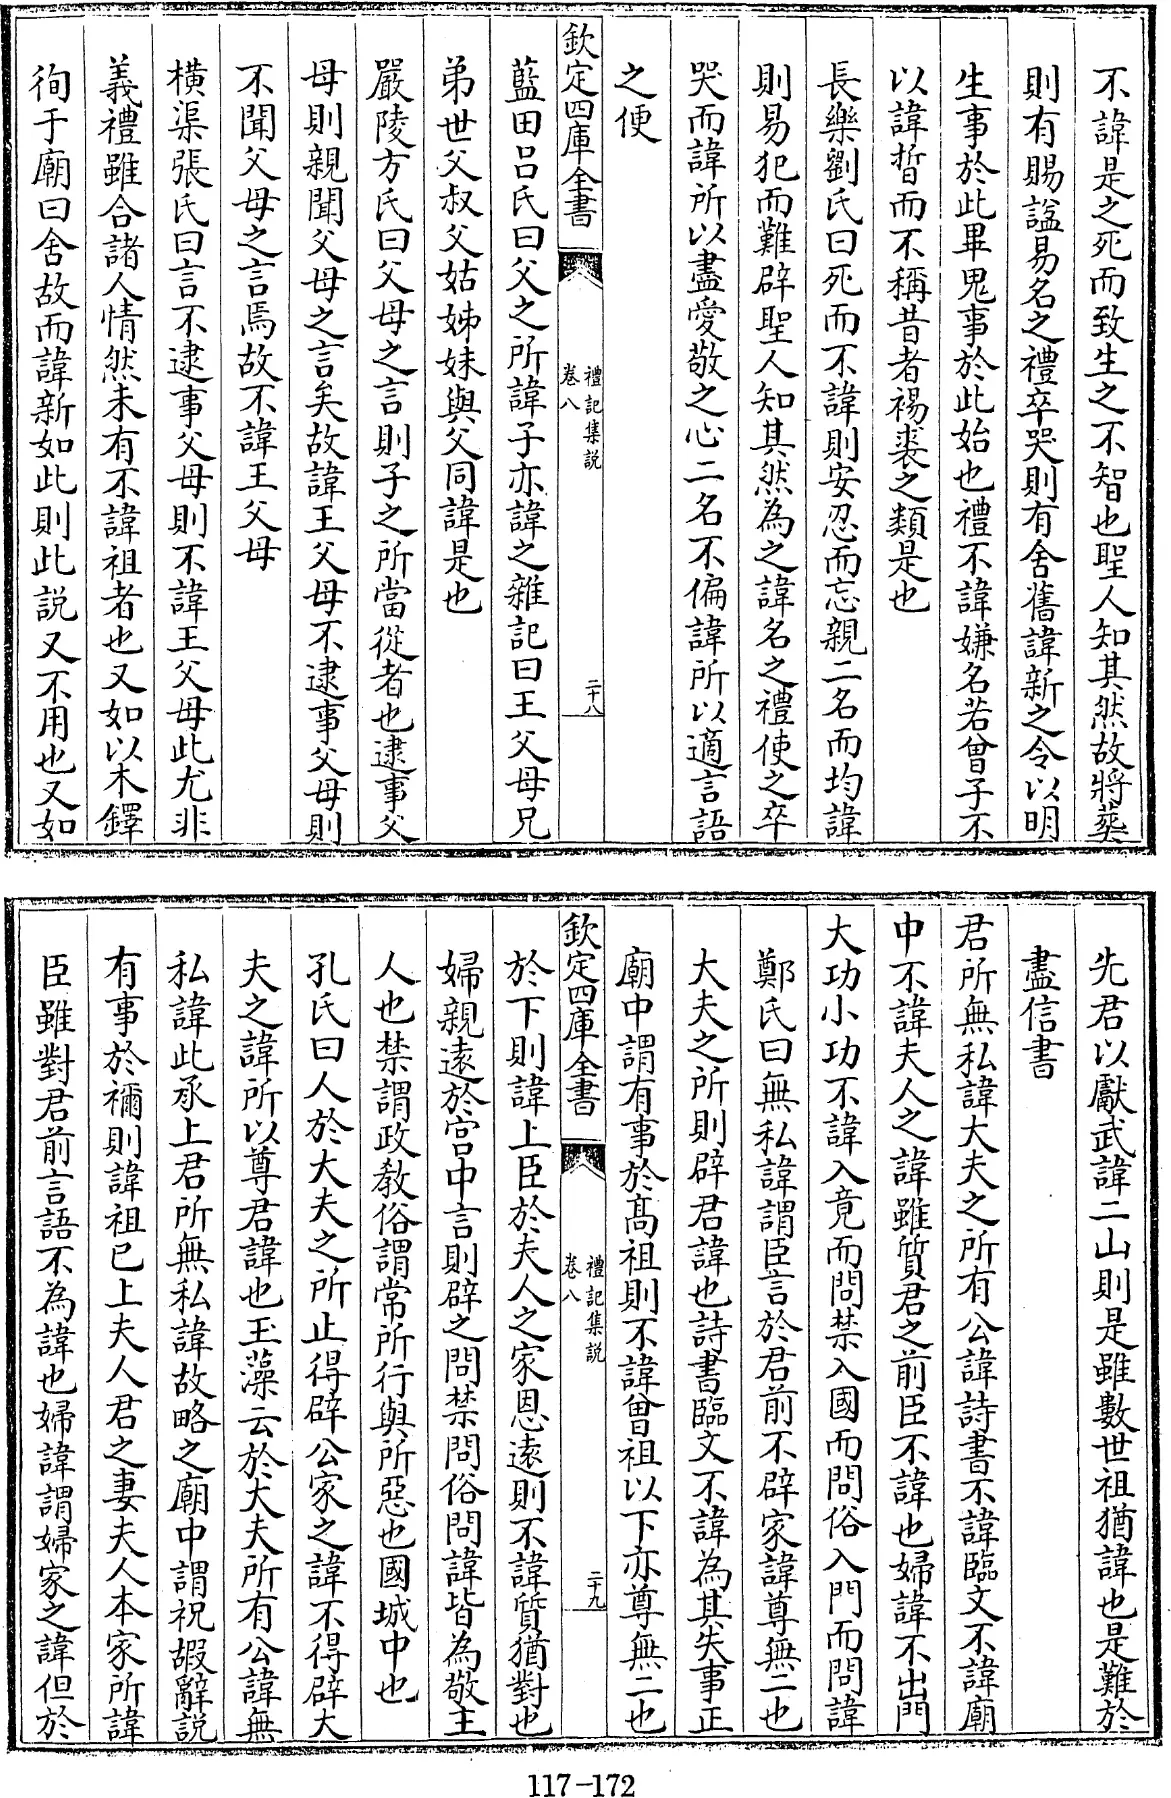 不諱是之死而致生之不智也聖人知其然故將葬
則有賜諡易名之禮卒哭則有舍舊諱新之令以明
生事於此畢鬼事於此始也禮不諱嫌名若曾子不
以諱晳而不稱昔者裼裘之類是也
長樂劉氏曰死而不諱則安忍而忘親二名而均諱
則易犯而難辟聖人知其然為之諱名之禮使之卒
哭而諱所以盡愛敬之心二名不偏諱所以適言語
之便
欽定四庫全書
禮記集說
卷八
二十八
藍田呂氏曰父之所諱子亦諱之雜記曰王父母兄
弟世父叔父姑姊妹與父同諱是也
嚴陵方氏曰父母之言則子之所當從者也逮事父
母則親聞父母之言矣故諱王父母不逮事父母則
不聞父母之言焉故不諱王父母
橫渠張氏曰言不逮事父母則不諱王父母此尤非
義禮雖合諸人情然未有不諱祖者也又如以木鐸
徇于廟曰舍故而諱新如此則此説又不用也又如
先君以獻武諱二山則是雖數世祖猶諱也是難於
盡信書
君所無私諱大夫之所有公諱詩書不諱臨文不諱廟
中不諱夫人之諱雖質君之前臣不諱也婦諱不出門
大功小功不諱入竟而問禁入國而問俗入門而問諱
鄭氏曰無私諱謂臣言於君前不辟家諱尊無二也
大夫之所則辟君諱也詩書臨文不諱為其失事正
廟中謂有事於髙祖則不諱曾祖以下亦尊無二也
欽定四庫全書
禮記集説
卷八
二十九
於下則諱上臣於夫人之家恩遠則不諱質猶對也
婦親遠於宫中言則辟之問禁問俗問諱皆為敬主
人也禁謂政教俗謂常所行與所惡也國城中也
孔氏曰人於大夫之所止得辟公家之諱不得辟大
夫之諱所以尊君諱也玉藻云於大夫所有公諱無
私諱此承上君所無私諱故略之廟中謂祝嘏辭説
有事於禰則諱祖已上夫人君之妻夫人本家所諱
臣雖對君前言語不為諱也婦諱謂婦家之諱但於
117-172